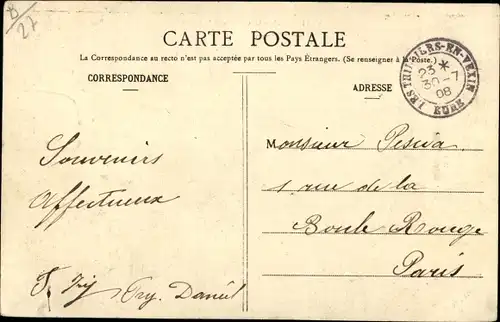 8
27
CARTE POSTALE
La Correspondance au recto n'est pas acceptée par tous les Pays Étrangers. (Se renseigner à la Poste.)
CORRESPONDANCE
ADRESSE
LES THILLIERS-EN-VEXIN
23 *
30-7
08
EURE
Souvenirs
Affectueux
Daniel
Monsieur
1 rue de la
Boule Rouge
Paris